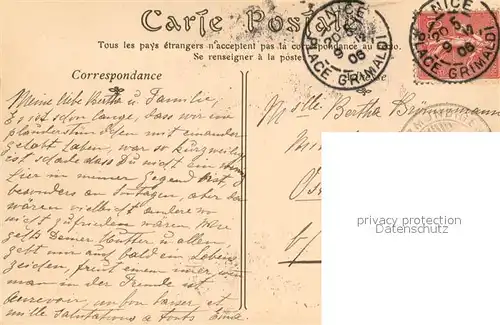 Carte Postale
Tous les pays étrangers n'acceptent pas la correspondance au recto.
Se renseigner à la poste
NICE
PLACE GRIMALDI
NICE
PLACE GRIMALDI
Correspondance
Meine liebe Bertha u. Familie,
Es ist schon lange, dass wir ein
plauderstündchen mit einander
gehabt haben, war so kurzweilig
ist schade dass Du nicht ein wenig
hier in meiner Gegend bist,
besonders an Sontagen, aber da
wären vielleicht andere so
nicht zufrieden wären. Wie
geht's Deiner Mutter u. allen
gebt mir auch bald ein Lebens
zeichen, freut einem immer wenn
man in der Fremde ist
aurevoir, un bon baiser, et
mille salutations a touts
Mlle Bertha
privacy protection
Datenschutz